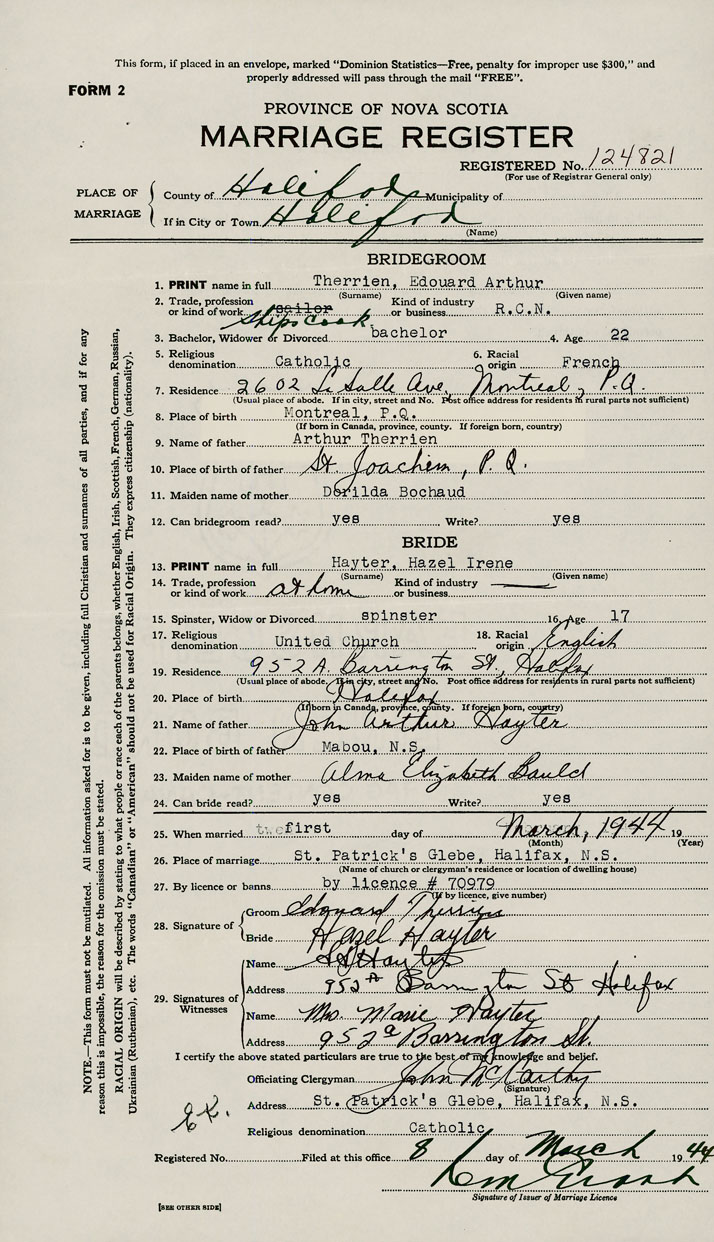 This form, if placed in an envelope, marked "Dominion Statistics—Free, penalty for improper use $300," and
properly addressed will pass through the mail "FREE".
FORM 2
PROVINCE OF NOVA SCOTIA
MARRIAGE REGISTER
REGISTERED No. 124821
(For use of Registrar General only)
PLACE OF MARRIAGE
County of Halifax Municipality of
If in City or Town Halifax
(Name)
BRIDEGROOM
1. PRINT name in full Therrien, Edouard Arthur
(Surname) (Given name)
2. Trade, profession or kind of work sailor Ships Cook Kind of industry or business R.C.N.
3. Bachelor, Widower or Divorced bachelor 4. Age 22
5. Religious denomination Catholic 6. Racial origin French
7. Residence 2602 LaSalle Ave, Montreal, P.Q.
(Usual place of abode. If in city, street and No. Post office address for residents in rural parts not sufficient)
8. Place of birth Montreal, P.Q.
(If born in Canada, province, county. If foreign born, country)
9. Name of father Arthur Therrien
10. Place of birth of father St. Joachem, P.Q.
11. Maiden name of mother Dorilda Bochaud
12. Can bridegroom read? yes Write? yes
BRIDE
13. PRINT name in full Hayter, Hazel Irene
(Surname) (Given name)
14. Trade, profession or kind of work at home Kind of industry or business
15. Spinster, Widow or Divorced spinster 16. Age 17
17. Religious denomination United Church 18. Racial origin English
19. Residence 952 A. Barrington St., Halifax
(Usual place of abode. If in city, street and No. Post office address for residents in rural parts not sufficient)
20. Place of birth Halifax
(If born in Canada, province, county. If foreign born, country)
21. Name of father John Arthur Hayter
22. Place of birth of father Mabou, N.S.
23. Maiden name of mother Alma Elizabeth Bauld
24. Can bride read? yes Write? yes
25. When married first day of March, 1944 19
(Month) (Year)
26. Place of marriage St. Patrick's Glebe, Halifax, N.S.
(Name of church or clergyman's residence or location of dwelling house)
27. By licence or banns by licence # 70979
(If by licence, give number)
28. Signature of
Groom Edouard Therrien
Bride Hazel Hayter
29. Signatures of Witnesses
Name Hayter
Address 952 A Barrington St Halifax
Name Mrs. Marie Hayter
Address 952a Barrington St.
I certify the above stated particulars are true to the best of my knowledge and belief.
Officiating Clergyman John McCarthy
(Signature)
Address St. Patrick's Glebe, Halifax, N.S.
Religious denomination Catholic
Registered No. Filed at this office 8 day of March 1944
Signature of Issuer of Marriage Licence
[SEE OTHER SIDE]
NOTE.—This form must not be mutilated. All information asked for is to be given, including full Christian and surnames of all parties, and if for any
reason this is impossible, the reason for the omission must be stated.
RACIAL ORIGIN will be described by stating to what people or race each of the parents belongs, whether English, Irish, Scottish, French, German, Russian,
Ukrainian (Ruthenian), etc. The words "Canadian" or "American" should not be used for Racial Origin. They express citizenship (nationality).